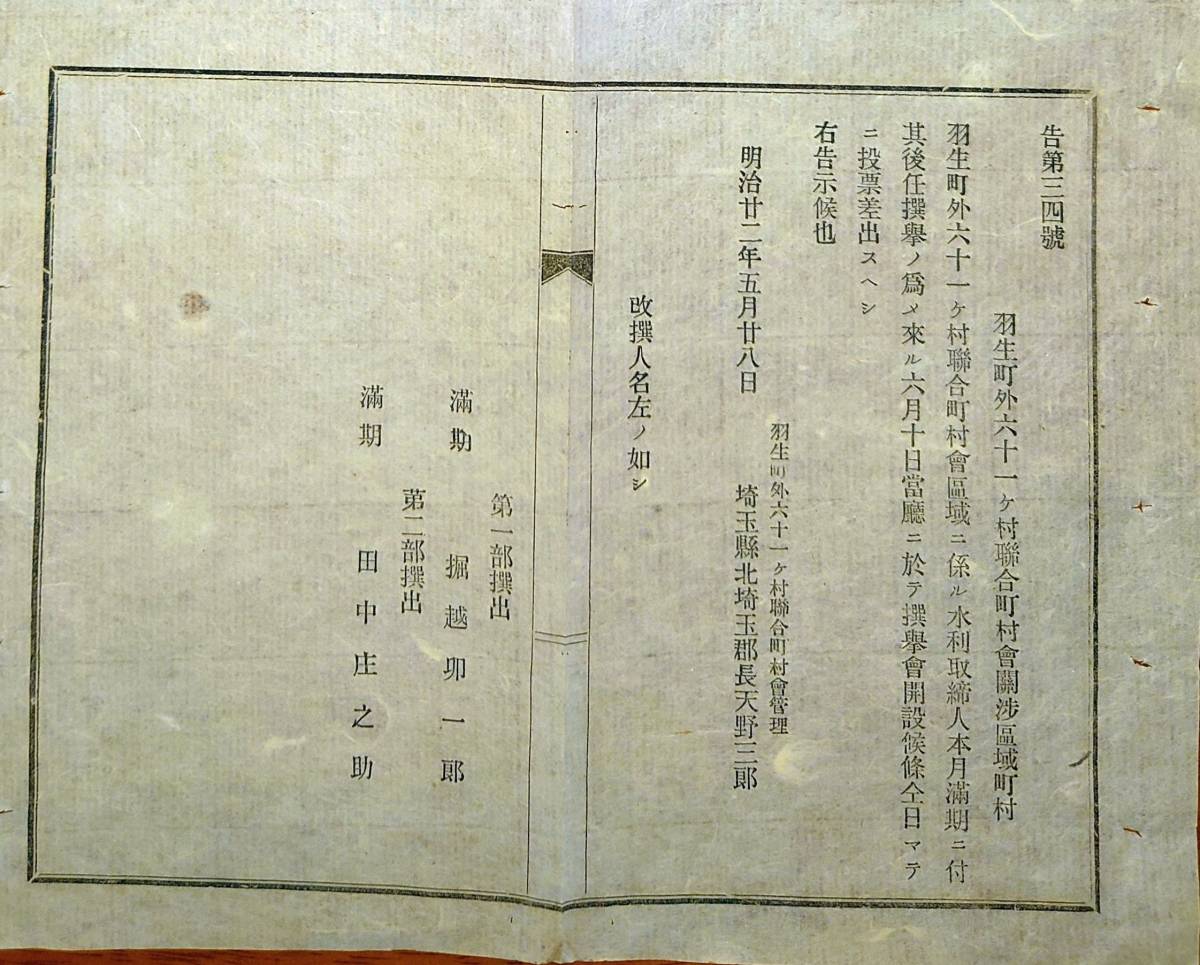 告第三四號
羽生町外六十一ケ村聯合町村會關渉區域町村
羽生町外六十一ケ村聯合町村會區域ニ係ル水利取締人本月滿期ニ付
其後任撰擧ノ爲メ來ル六月十日當廳ニ於テ撰擧會開設候條仝日マテ
ニ投票差出スヘシ
右告示候也
羽生町外六十一ケ村聯合町村會管理
明治廿二年五月廿八日 埼玉縣北埼玉郡長天野三郎
改撰人名左ノ如シ
第一部撰出
滿期 掘越卯一郎
第二部撰出
滿期 田中庄之助